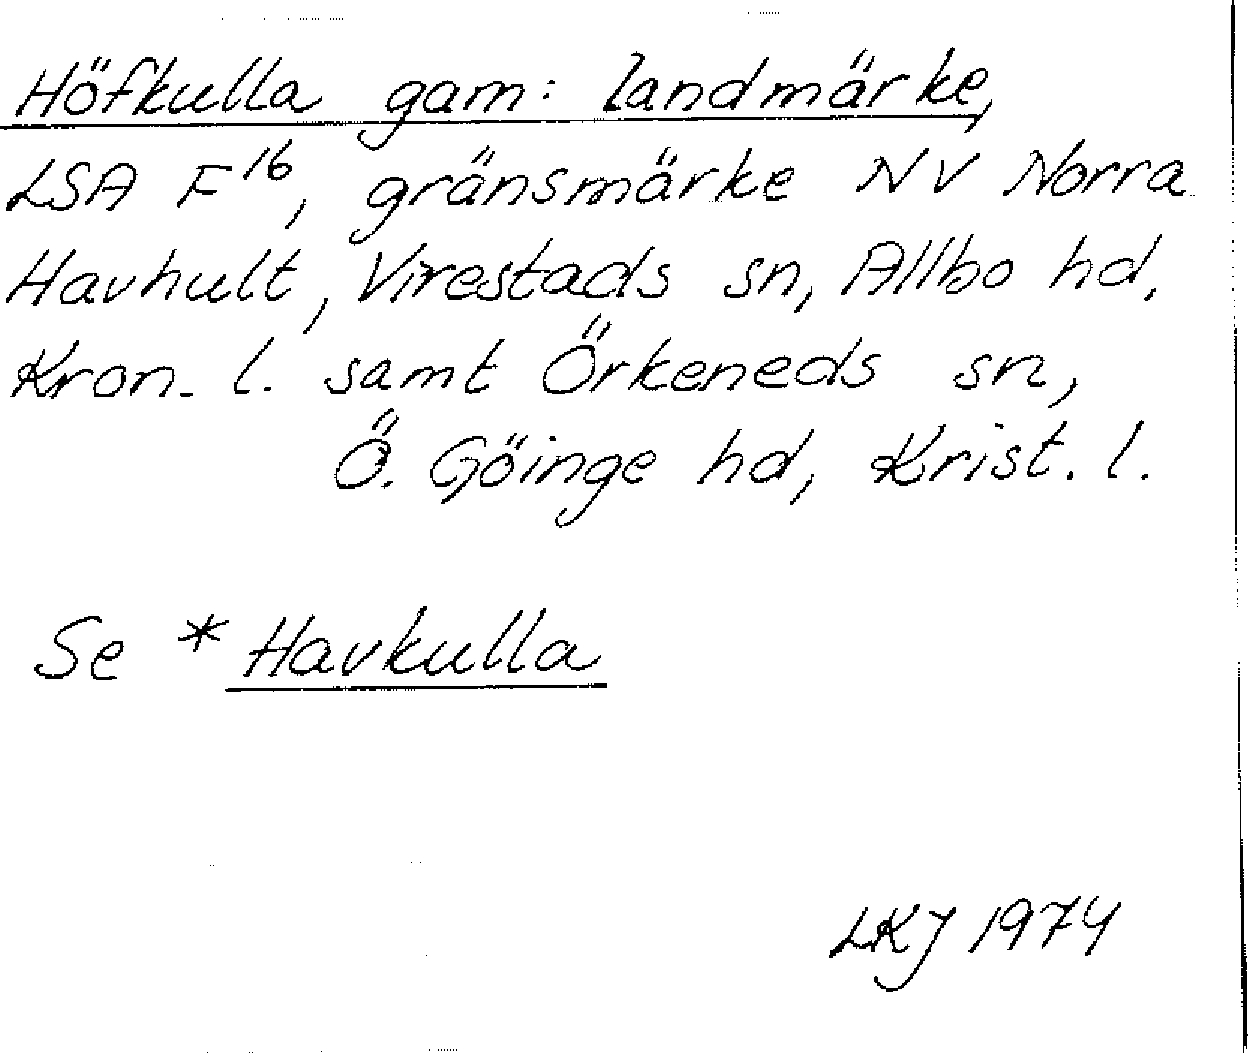 Höfkulla gam: landmärke,
LSA F16, gränsmärke NV Norra
Havhult, Virestads sn, Allbo hd,
Kron. l. samt Örkeneds sn,
Ö. Göinge hd, Krist. l.
Se * Havkulla
LKJ 1974